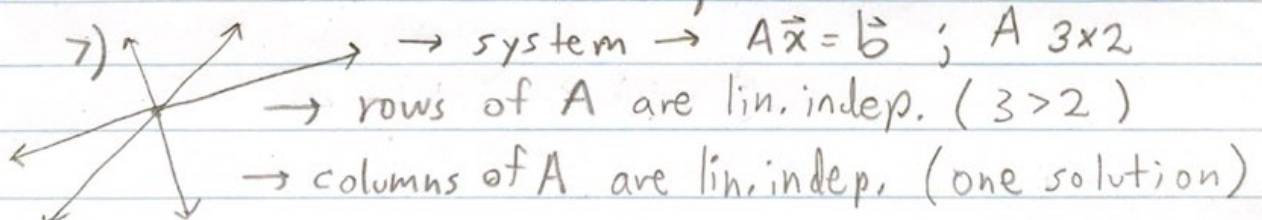 7) → system → Ax⃗ = b⃗ ; A 3x2
→ rows of A are lin. indep. (3>2)
→ columns of A are lin. indep. (one solution)